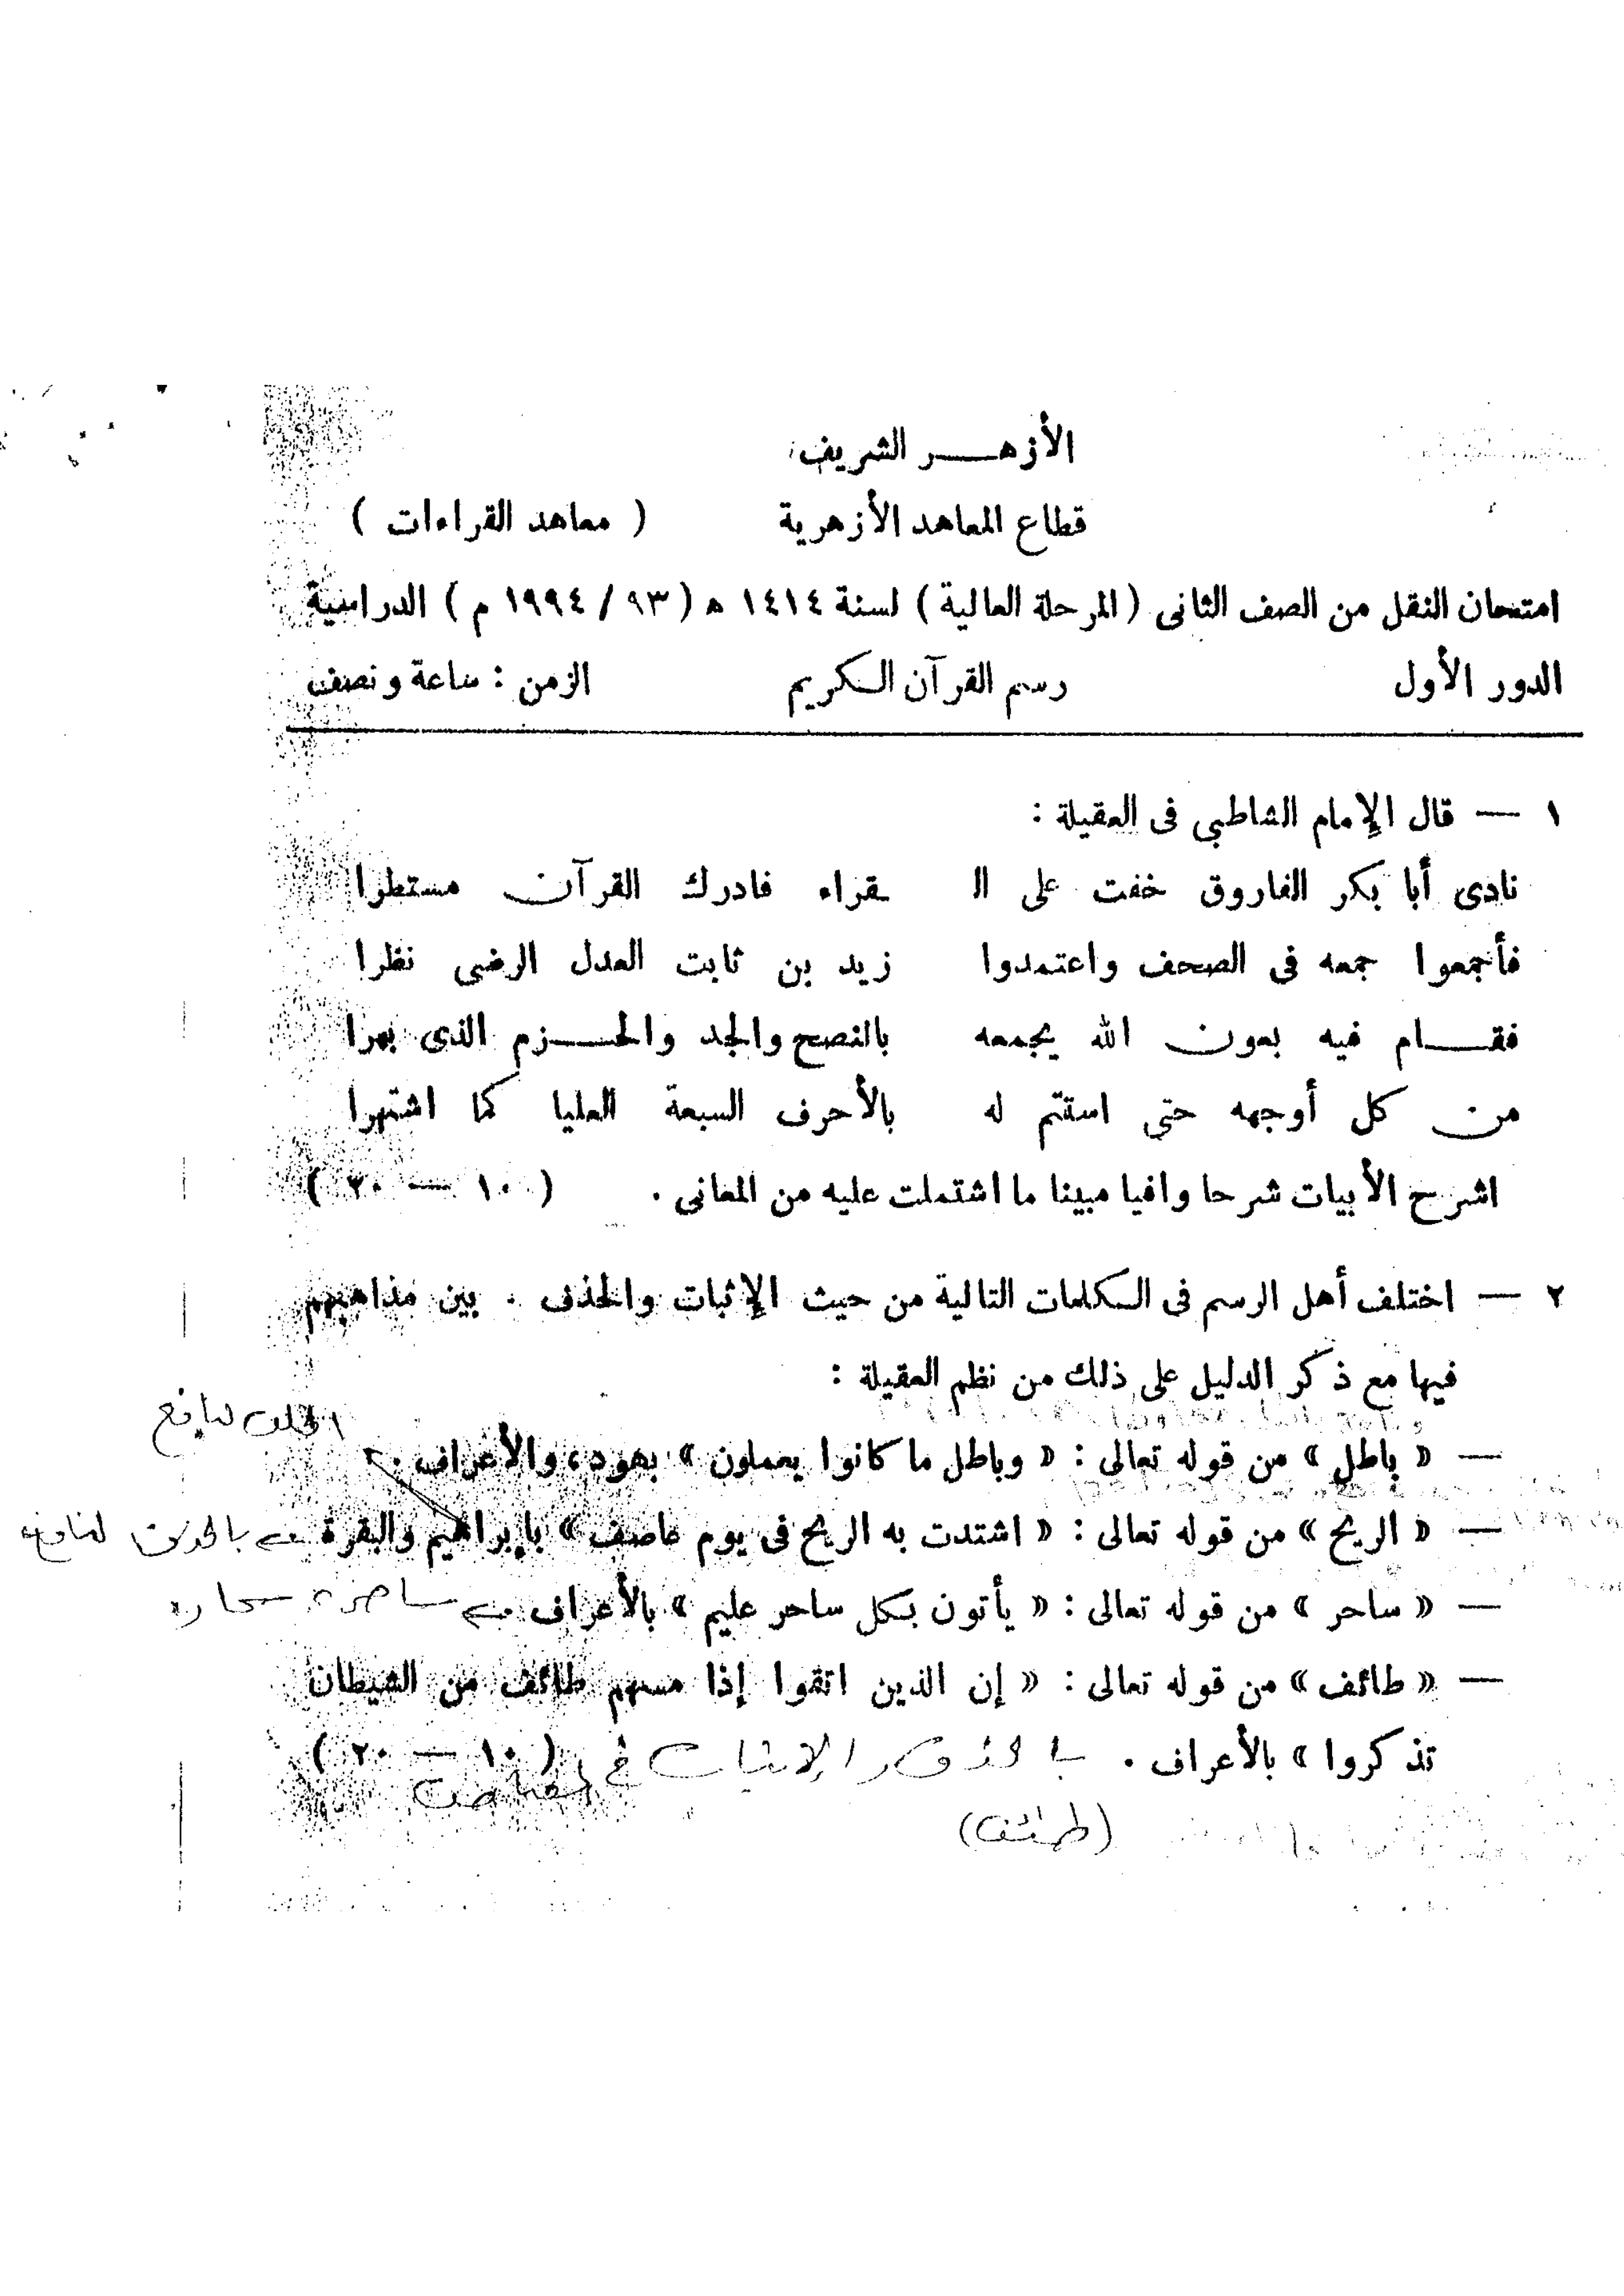 الأزهـــر الشريف
قطاع المعاهد الأزهرية ( معاهد القراءات )
امتحان النقل من الصف الثانى ( المرحلة العالية ) لسنة ١٤١٤ ه ( ٩٣ / ١٩٩٤ م ) الدراسية
الدور الأول رسم القرآن الكريم الزمن : ساعة ونصف
١ — قال الإمام الشاطبي فى العقيلة :
نادى أبا بكر الفاروق خفت على الـ ـقراء فادرك القرآن مستطرا
فأجمعوا جمعه فى الصحف واعتمدوا زيد بن ثابت العدل الرضى نظرا
فقـــام فيه بعون الله يجمعه بالنصح والجد والحـــزم الذى بهرا
من كل أوجهه حتى استتم له بالأحرف السبعة العليا كما اشتهرا
اشرح الأبيات شرحا وافيا مبينا ما اشتملت عليه من المعانى . ( ١٠ — ٢٠ )
٢ — اختلف أهل الرسم فى الكلمات التالية من حيث الإثبات والحذف . بين مذاهبهم
فيها مع ذكر الدليل على ذلك من نظم العقيلة :
لنافع
— « باطل » من قوله تعالى : « وباطل ما كانوا يعملون » بهود ، والأعراف .
— « الريح » من قوله تعالى : « اشتدت به الريح فى يوم عاصف » بإبراهيم والبقرة بالحذف لنافع
— « ساحر » من قوله تعالى : « يأتون بكل ساحر عليم » بالأعراف . ساحر سحار
— « طائف » من قوله تعالى : « إن الذين اتقوا إذا مسهم طائف من الشيطان
تذكروا » بالأعراف . بالحذف والإثبات فى ( ١٠ — ٢٠ )
(طائف)